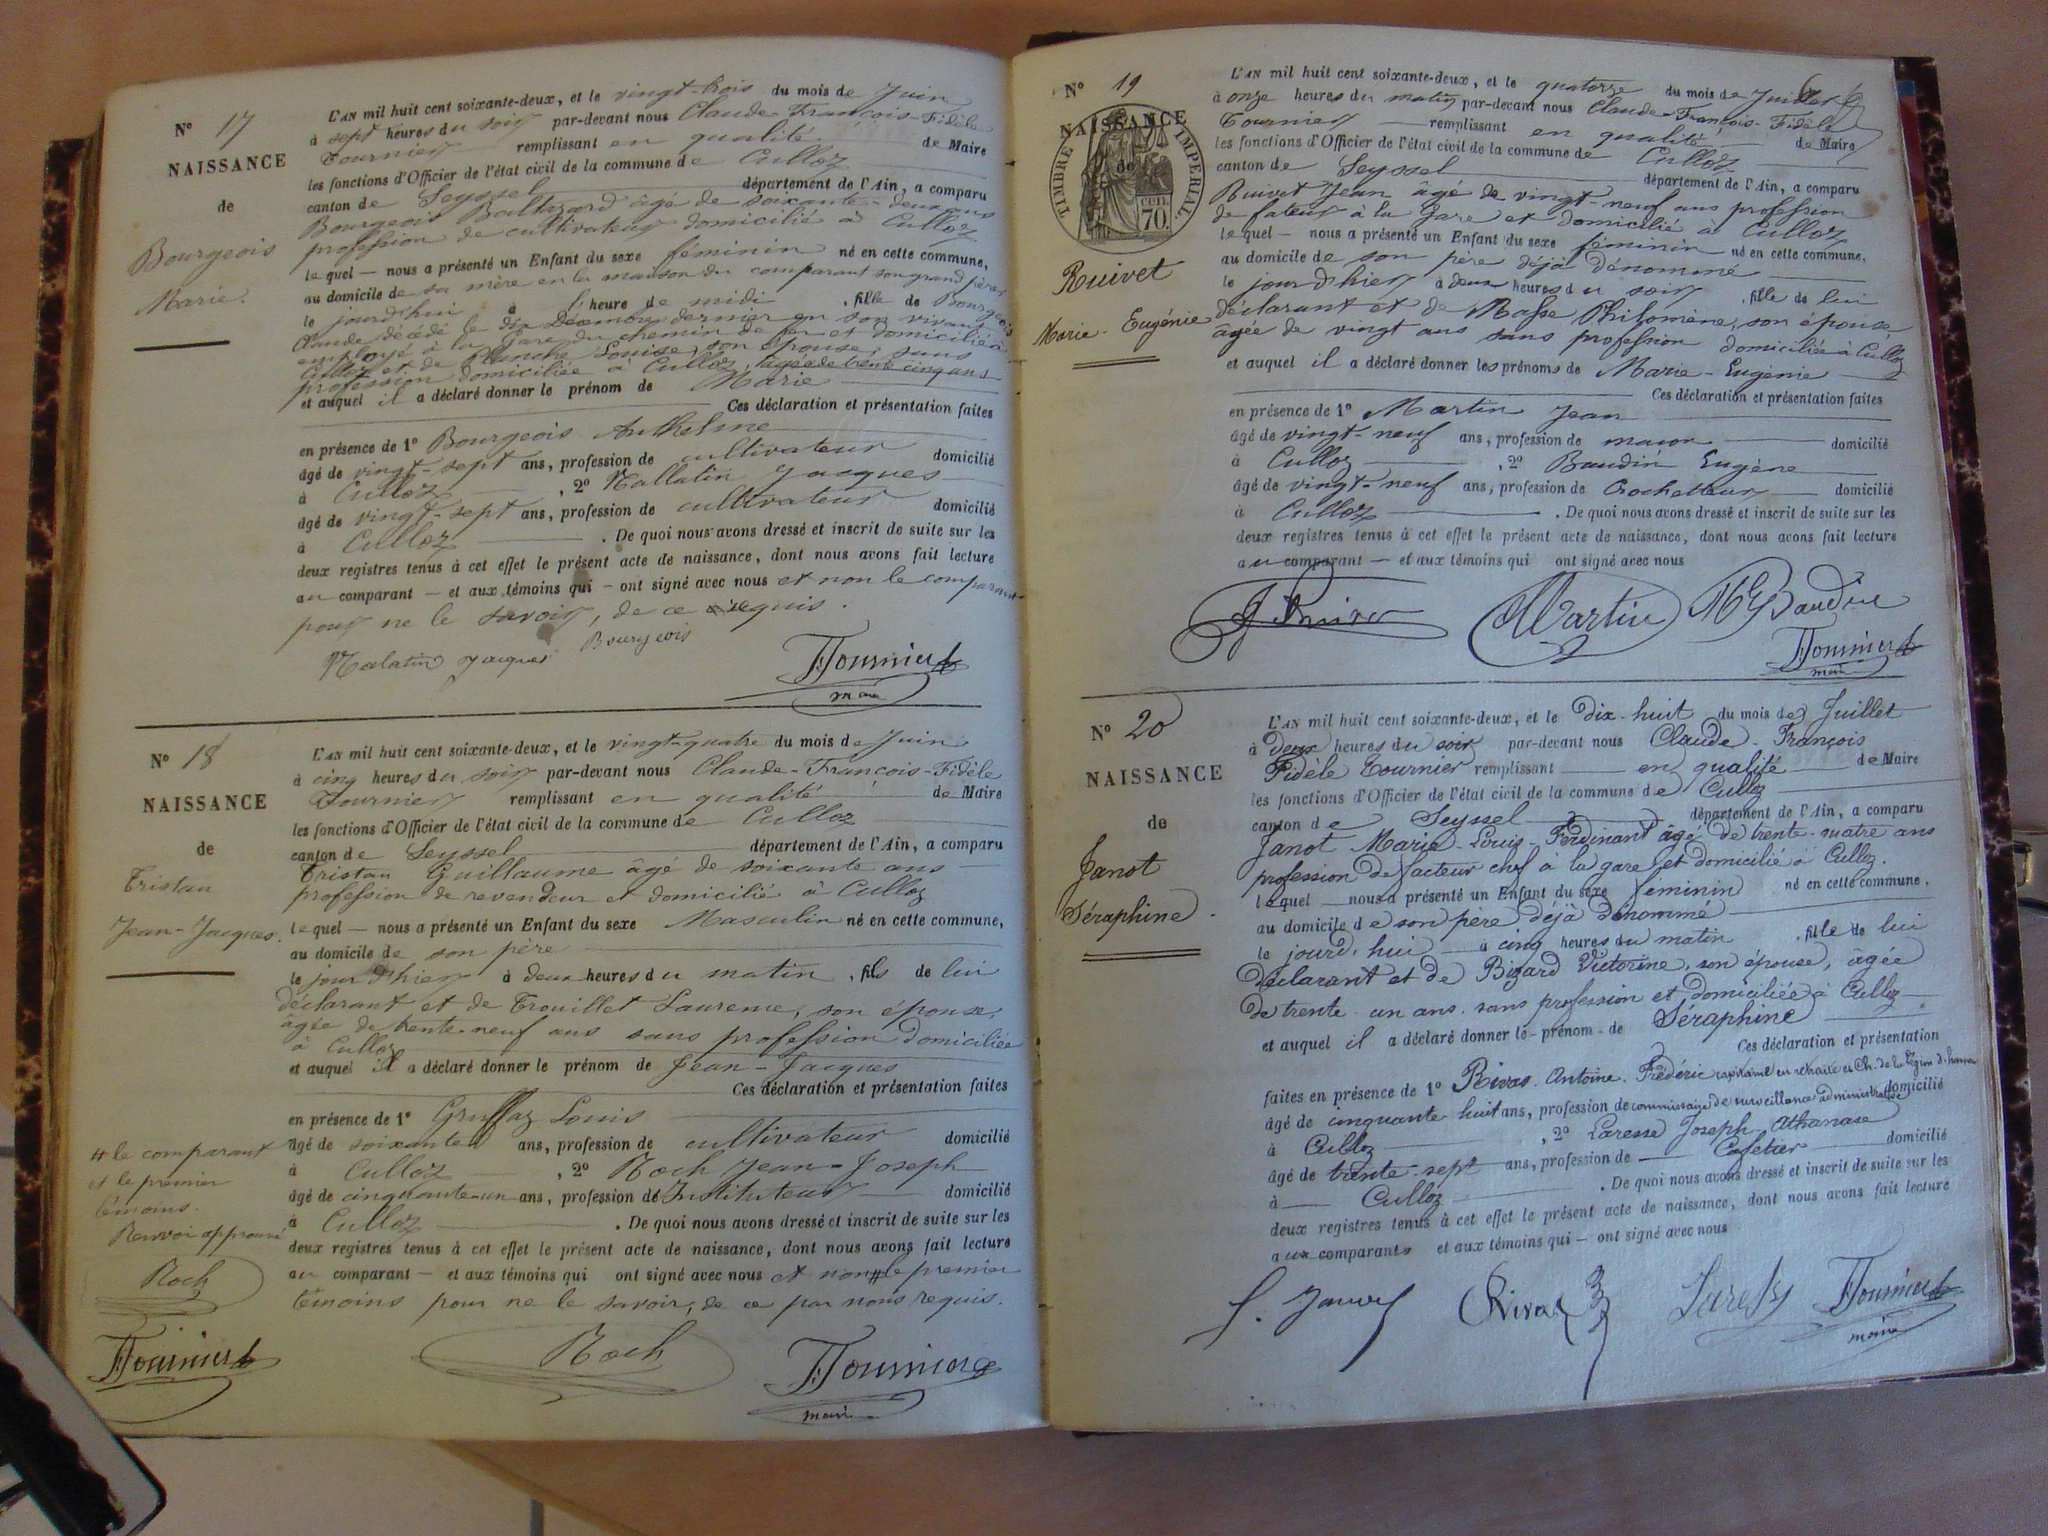 N° 17
NAISSANCE
de
Bourgeois
Marie.
L'AN mil huit cent soixante-deux, et le vingt-trois du mois de Juin
à sept heures du soir par-devant nous Claude François-Fidèle
Tournier remplissant en qualité de Maire
les fonctions d'Officier de l'état civil de la commune de Culloz
canton de Seyssel département de l'Ain, a comparu
Bourgeois Balthazard âgé de soixante-deux ans
profession de cultivateur domicilié à Culloz
lequel — nous a présenté un Enfant du sexe féminin né en cette commune,
au domicile de sa mère en la maison du comparant son grand père
le jourd'hui à l'heure de midi , fille de Bourgeois
Claude décédé le dix Décembre dernier en son vivant
employé à la Gare du chemin de fer et domicilié à
Culloz et de Planche Louise, son épouse, sans
profession domiciliée à Culloz, âgée de trente cinq ans
et auquel il a déclaré donner le prénom de Marie
Ces déclaration et présentation faites
en présence de 1° Bourgeois Anthelme
âgé de vingt-sept ans, profession de cultivateur domicilié
à Culloz , 2° Mallatin Jacques
âgé de vingt-sept ans, profession de cultivateur domicilié
à Culloz . De quoi nous avons dressé et inscrit de suite sur les
deux registres tenus à cet effet le présent acte de naissance, dont nous avons fait lecture
au comparant — et aux témoins qui — ont signé avec nous et non le comparant
pour ne le savoir, de ce requis.
Malatin Jacques Bourgeois
Tournier
maire
N° 18
NAISSANCE
de
Tristan
Jean-Jacques.
L'AN mil huit cent soixante-deux, et le vingt-quatre du mois de Juin
à cinq heures du soir par-devant nous Claude-François-Fidèle
Tournier remplissant en qualité de Maire
les fonctions d'Officier de l'état civil de la commune de Culloz
canton de Seyssel département de l'Ain, a comparu
Tristan Guillaume âgé de soixante ans
profession de revendeur et domicilié à Culloz
lequel — nous a présenté un Enfant du sexe Masculin né en cette commune,
au domicile de son père
le jour d'hier à deux heures du matin , fils de lui
déclarant et de Trouillet Laurence, son épouse,
âgée de trente-neuf ans sans profession domiciliée
à Culloz
et auquel il a déclaré donner le prénom de Jean-Jacques
Ces déclaration et présentation faites
en présence de 1° Gruffaz Louis
âgé de soixante ans, profession de cultivateur domicilié
à Culloz , 2° Roch Jean-Joseph
âgé de cinquante-un ans, profession de Instituteur domicilié
à Culloz . De quoi nous avons dressé et inscrit de suite sur les
deux registres tenus à cet effet le présent acte de naissance, dont nous avons fait lecture
au comparant — et aux témoins qui ont signé avec nous et non # le premier
témoins pour ne le savoir, de ce par nous requis.
# le comparant
et le premier
témoins.
Renvoi approuvé
Roch
Tournier
Roch
Tournier
maire
N° 19
NAISSANCE
de
TIMBRE IMPERIAL.
cen.
70.
Ruivet
Marie-Eugénie
L'AN mil huit cent soixante-deux, et le quatorze du mois de Juillet
à onze heures du matin par-devant nous Claude-François-Fidèle
Tournier remplissant en qualité de Maire
les fonctions d'Officier de l'état civil de la commune de Culloz
canton de Seyssel département de l'Ain, a comparu
Ruivet Jean âgé de vingt-neuf ans profession
de fateur à la Gare et domicilié à Culloz
lequel — nous a présenté un Enfant du sexe féminin né en cette commune,
au domicile de son père déjà dénommé
le jour d'hier à deux heures du soir , fille de lui
déclarant et de Masse Philomène, son épouse
âgée de vingt ans sans profession domiciliée à Culloz
et auquel il a déclaré donner les prénoms de Marie-Eugénie
Ces déclaration et présentation faites
en présence de 1° Martin Jean
âgé de vingt-neuf ans, profession de maçon domicilié
à Culloz , 2° Baudin Eugène
âgé de vingt-neuf ans, profession de Crocheteur domicilié
à Culloz . De quoi nous avons dressé et inscrit de suite sur les
deux registres tenus à cet effet le présent acte de naissance, dont nous avons fait lecture
au comparant — et aux témoins qui ont signé avec nous
Martin Baudin
Tournier
maire
N° 20
NAISSANCE
de
Janot
Séraphine.
L'AN mil huit cent soixante-deux, et le dix-huit du mois de Juillet
à deux heures du soir par-devant nous Claude-François
Fidèle Tournier remplissant en qualité de Maire
les fonctions d'Officier de l'état civil de la commune de Culloz
canton de Seyssel département de l'Ain, a comparu
Janot Marie-Louis-Ferdinant âgé de trente-quatre ans
profession de facteur chef à la gare et domicilié à Culloz.
lequel — nous a présenté un Enfant du sexe féminin né en cette commune,
au domicile de son père déjà dénommé
le jourd'hui à cinq heures du matin , fille de lui
déclarant et de Bizard Victorine, son épouse, âgée
de trente-un ans, sans profession et domiciliée à Culloz
et auquel il a déclaré donner le prénom de Séraphine
Ces déclaration et présentation
faites en présence de 1° Rivas Antoine Frédéric capitaine en retraite et Ch. de la Légion d'honneur
âgé de cinquante huit ans, profession de commissaire de surveillance administrative domicilié
à Culloz , 2° Laresse Joseph Athanase
âgé de trente-sept ans, profession de Cafetier domicilié
à Culloz . De quoi nous avons dressé et inscrit de suite sur les
deux registres tenus à cet effet le présent acte de naissance, dont nous avons fait lecture
aux comparants et aux témoins qui — ont signé avec nous
Rivas Tournier
maire